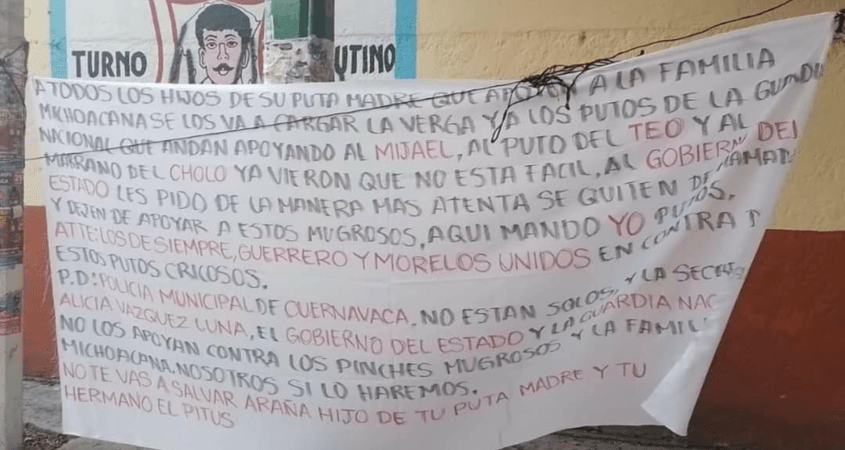 TURNO
UTINO
A TODOS LOS HIJOS DE SU PUTA MADRE QUE APOYEN A LA FAMILIA
MICHOACANA SE LOS VA A CARGAR LA VERGA Y A LOS PUTOS DE LA GUARDI
NACIONAL QUE ANDAN APOYANDO AL MIJAEL, AL PUTO DEL TEO Y AL
MARRANO DEL CHOLO YA VIERON QUE NO ESTA FACIL, AL GOBIERNO DEL
ESTADO LES PIDO DE LA MANERA MAS ATENTA SE QUITEN DE MAMAD
Y DEJEN DE APOYAR A ESTOS MUGROSOS, AQUI MANDO YO PUTOS.
ATTE: LOS DE SIEMPRE, GUERRERO Y MORELOS UNIDOS EN CONTRA
ESTOS PUTOS CRICOSOS.
P.D: POLICIA MUNICIPAL DE CUERNAVACA, NO ESTAN SOLOS, Y LA SECRET
ALICIA VAZQUEZ LUNA, EL GOBIERNO DEL ESTADO Y LA GUARDIA NAC
NO LOS APOYAN CONTRA LOS PINCHES MUGROSOS Y LA FAMILI
MICHOACANA. NOSOTROS SI LO HAREMOS.
NO TE VAS A SALVAR ARAÑA HIJO DE TU PUTA MADRE Y TU
HERMANO EL PITUS